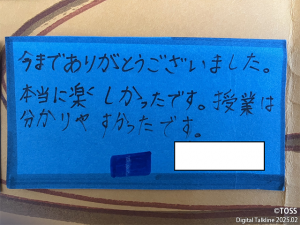 今までありがとうございました。
本当に楽くしかったです。授業は
分かりやすかったです。
©TOSS
Digital Talkline 2025.02